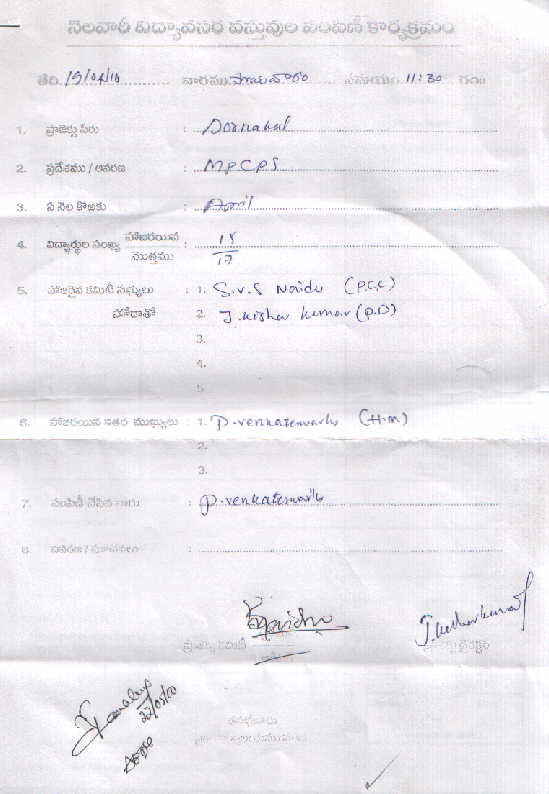 నెలవారీ విద్యావసర వస్తువుల పంపిణీ కార్యక్రమం
తేది. 19/04/10 వారము సోమవారం సమయం. 11:30 గం॥
1. ప్రాజెక్టు పేరు : Dornakal
2. ప్రదేశము / ఆవరణ : MPCPS
3. ఏ నెల కొఱకు : April
4. విద్యార్థుల సంఖ్య హాజరయిన : 15
మొత్తము 17
5. హాజరైన కమిటీ సభ్యులు : 1. S.V.S Naidu (P.C.C)
హోదాతో 2. J. Kishor Kumar (P.D)
3.
4.
5.
6. హాజరయిన ఇతర ముఖ్యులు : 1. P. Venkateswarlu (H.M)
2.
3.
7. పంపిణీ చేసిన వారు : P. Venkateswarlu
8. :
Naidu J. Kishorkumar
ప్రాజెక్టు కమిటీ